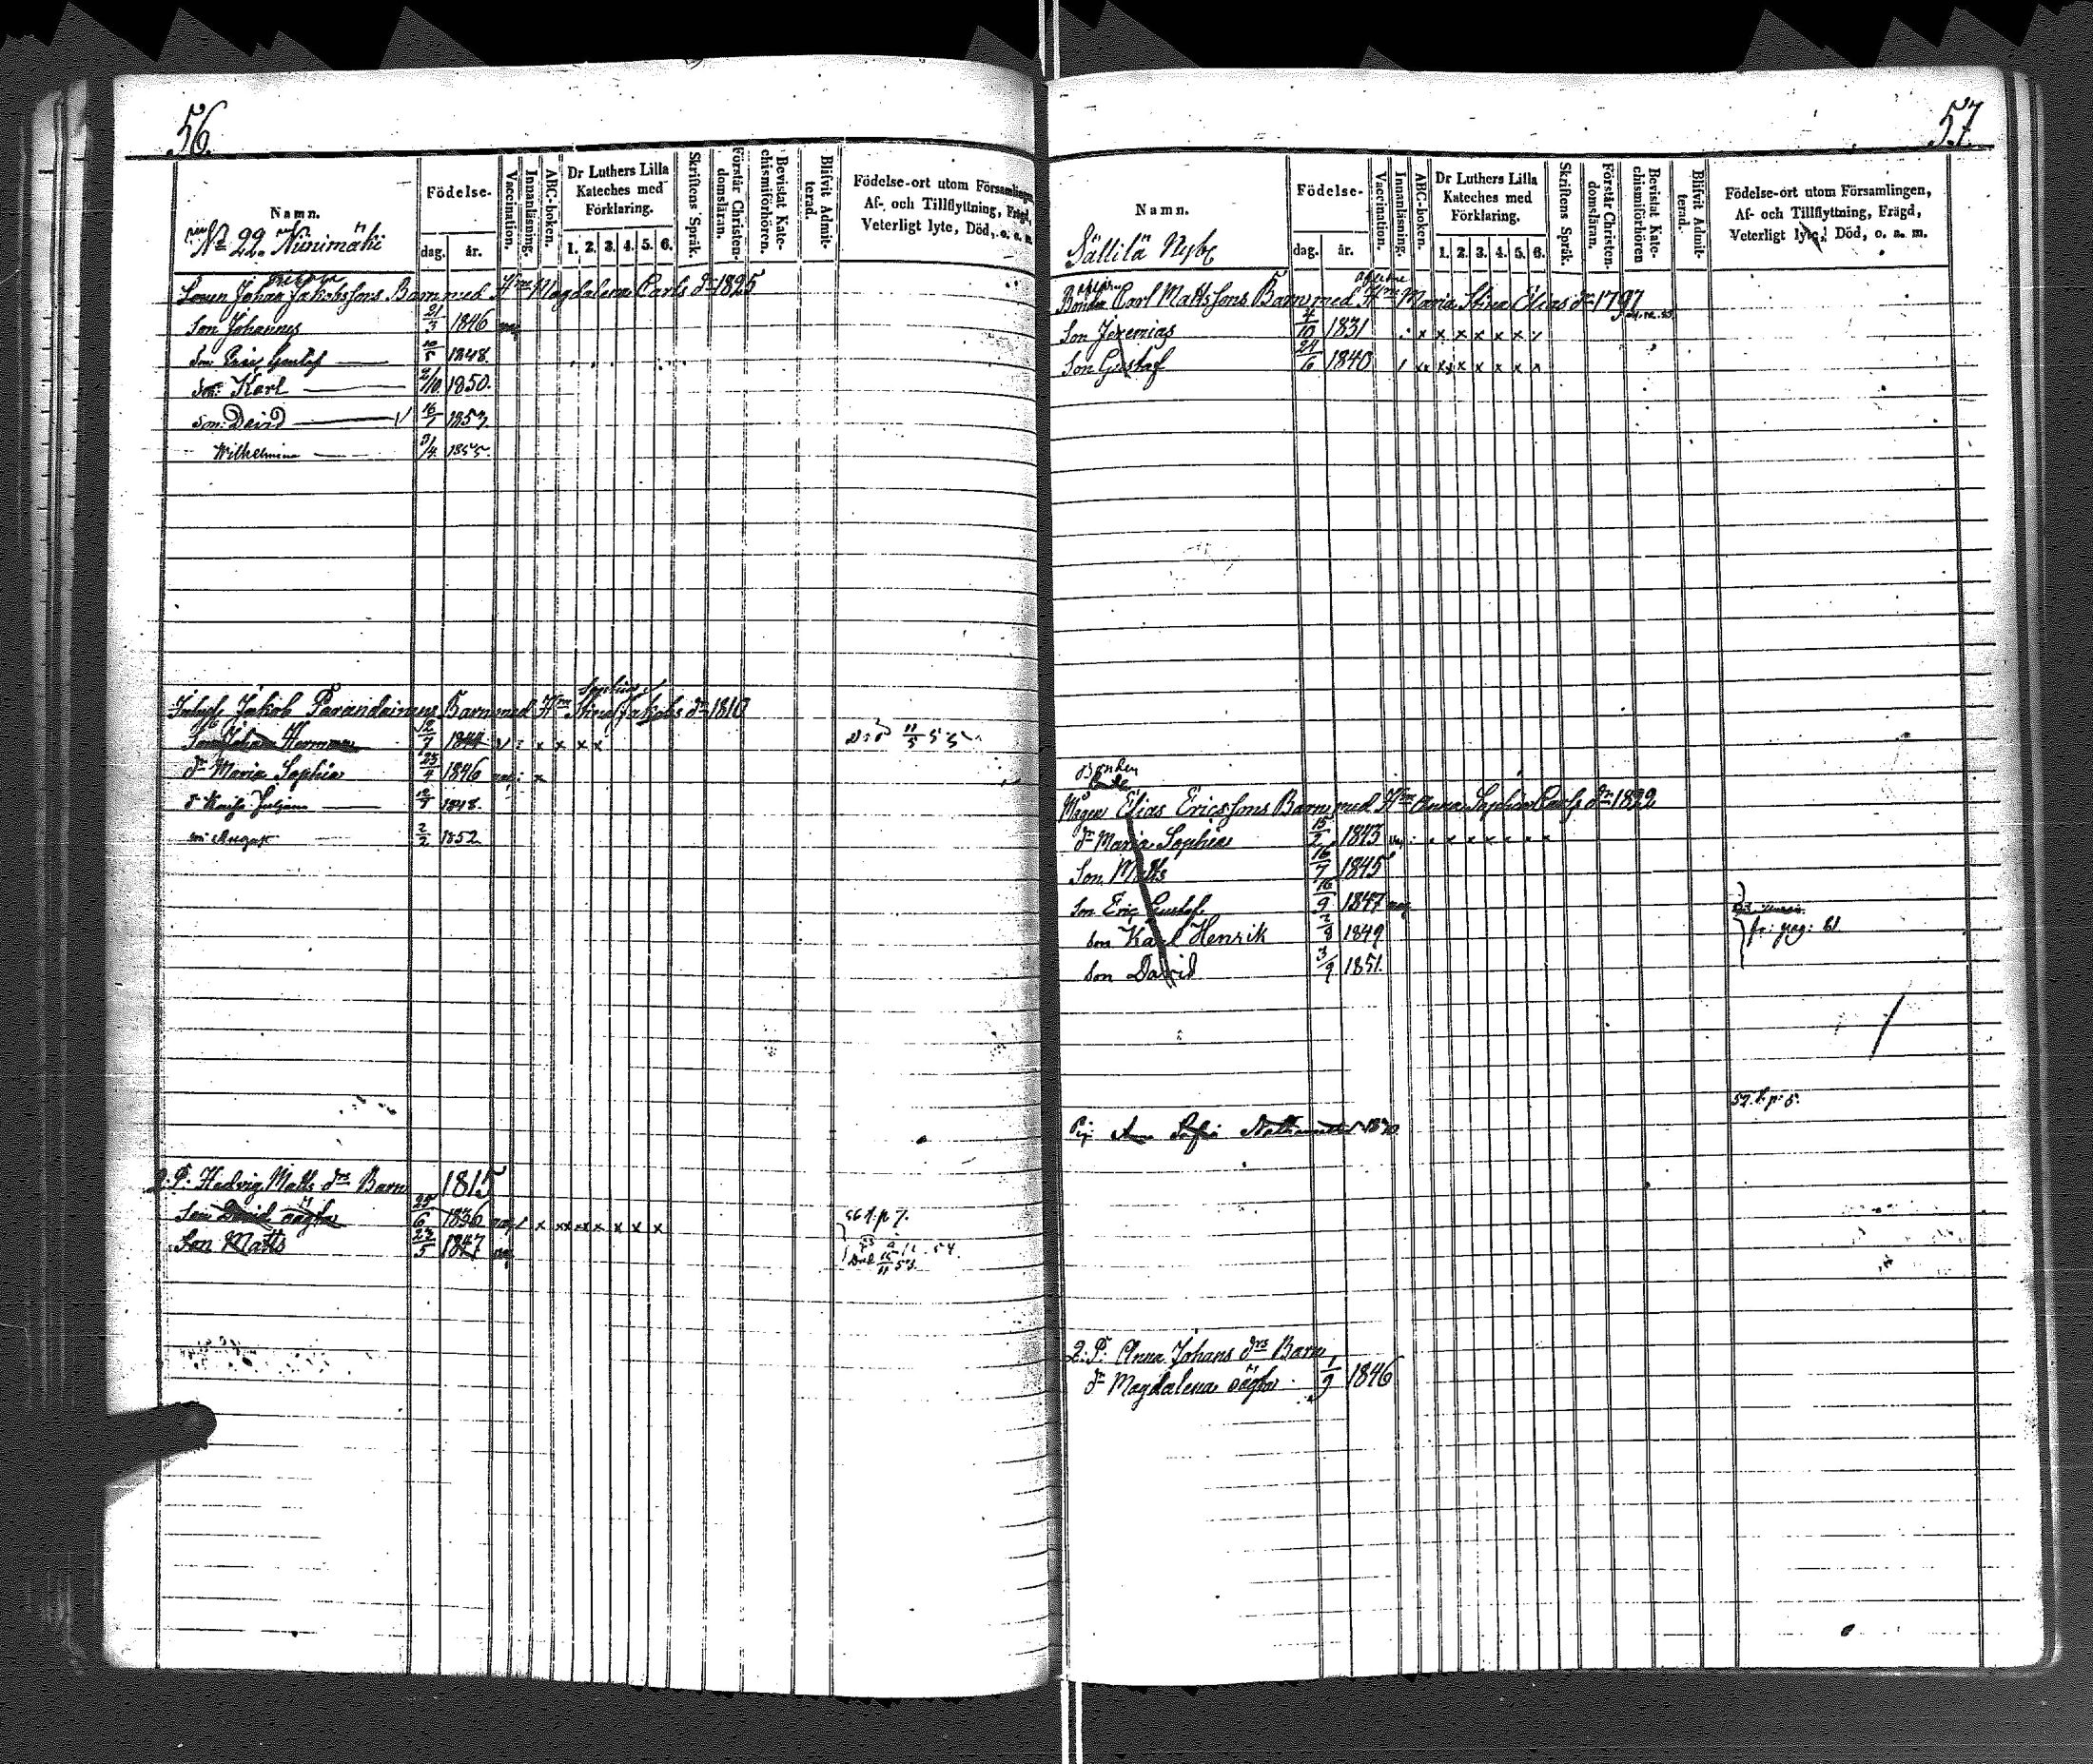 56.
Namn.
Födelse-
dag. år.
Vaccination.
Innanläsning.
ABC-boken.
Dr Luthers Lilla
Kateches med
Förklaring.
1. 2. 3. 4. 5. 6.
Skriftens Språk.
Förstår Christen-
domsläran.
Bevistat Kate-
chismiförhören.
Blifvit Admit-
terad.
Födelse-ort utom Församlingen,
Af- och Tillflyttning, Frägd,
Veterligt lyte, Död, o. a. m.
No 22. Niinimäki
Sonen Johan Jakobssons Barn med Hm Magdalena Carls dr 1825
Son Johannes 21/3 1846
Son Eric Gustaf 10/5 1848.
Son: Karl 2/10 1850.
Son: David 16/7 1853
Wilhelmina 3/4 1855.
Jakob Parandainens Barn med Hm Stina Jakobs dr 1810
Son Johan Herman 12/7 1844 x x x x
Död 11/5 55
dr Maria Sophia 23/4 1846 x
d Kaisa Juliana 12/7 1848.
son August 2/2 1852
Q. P. Hedvig Matts drs Barn 1815
Son David oägta 25/6 1836 x xx xx x x x x
56 f. p 7.
Son Matts 23/5 1847
Död 15/11 53.
57.
Namn.
Födelse-
dag. år.
Vaccination.
Innanläsning.
ABC-boken.
Dr Luthers Lilla
Kateches med
Förklaring.
1. 2. 3. 4. 5. 6.
Skriftens Språk.
Förstår Christen-
domsläran.
Bevistat Kate-
chismiförhören
Blifvit Admit-
terad.
Födelse-ort utom Församlingen,
Af- och Tillflyttning, Frägd,
Veterligt lyte, Död, o. a. m.
Sällilä Nybc
Bonden Carl Mattssons Barn med Hm Maria Stina Elias dr 1797
Son Jeremias 4/10 1831 x x x x x x x
Son Gustaf 24/6 1840 xx xx x x x x x
Bonden
Mågen Elias Ericssons Barn med Hm Anna Sophia Carls dr 1822
dr Maria Sophia 15/2 1843 x x x x x x x
Son Matts 16/7 1845
Son Eric Gustaf 16/9 1847
Son Karl Henrik 2/9 1849
fr: pag: 61
Son David 3/9 1851.
57. f. p. 5.
Pig. Ann Sofia
Q. P. Anna Johans drs Barn
dr Magdalena oägta 1/9 1846